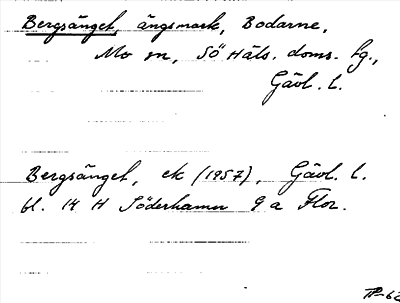 Bergsänget, ängsmark, Bodarne,
Mo sn, SÖ Häls. doms. fg.,
Gävl. l.
Bergsänget, ek (1957), Gävl. l.
bl. 14 H Söderhamn 9 a Flor.